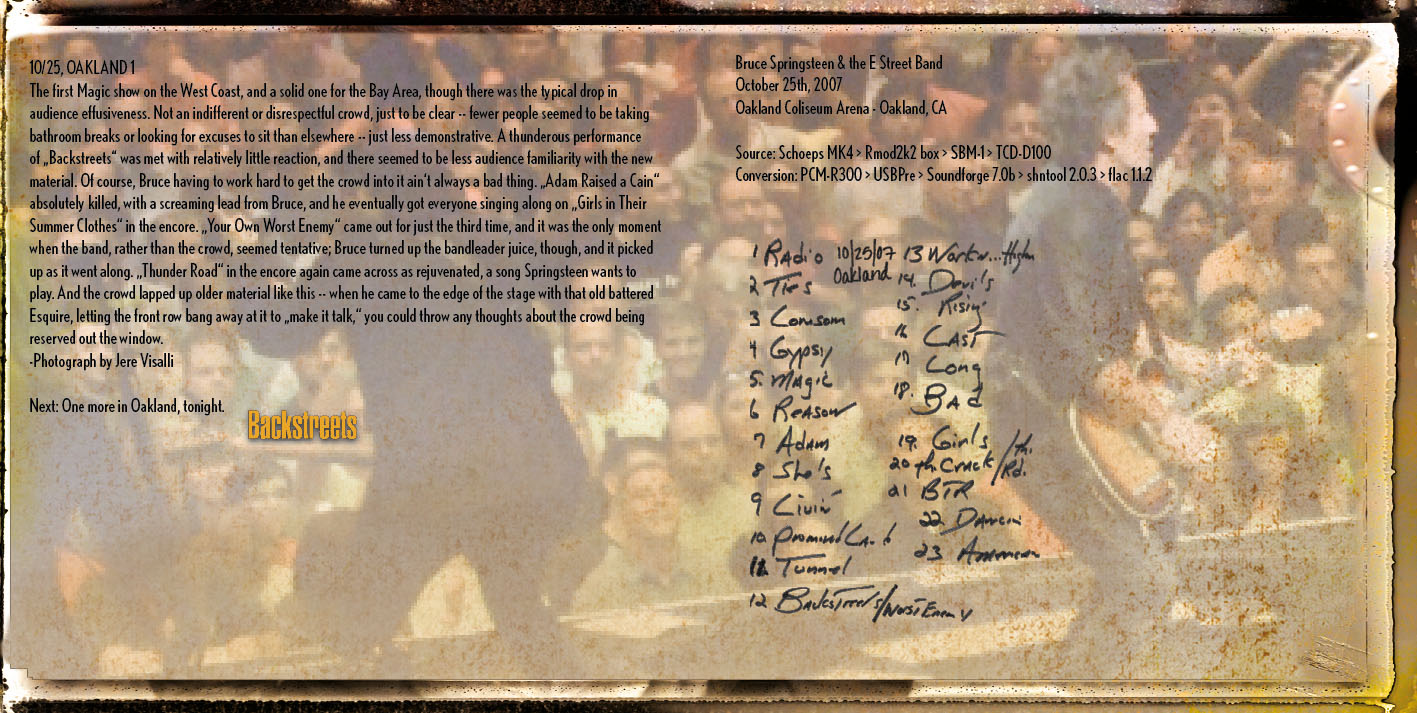 10/25, OAKLAND 1
The first Magic show on the West Coast, and a solid one for the Bay Area, though there was the typical drop in
audience effusiveness. Not an indifferent or disrespectful crowd, just to be clear -- fewer people seemed to be taking
bathroom breaks or looking for excuses to sit than elsewhere -- just less demonstrative. A thunderous performance
of „Backstreets“ was met with relatively little reaction, and there seemed to be less audience familiarity with the new
material. Of course, Bruce having to work hard to get the crowd into it ain‘t always a bad thing. „Adam Raised a Cain“
absolutely killed, with a screaming lead from Bruce, and he eventually got everyone singing along on „Girls in Their
Summer Clothes“ in the encore. „Your Own Worst Enemy“ came out for just the third time, and it was the only moment
when the band, rather than the crowd, seemed tentative; Bruce turned up the bandleader juice, though, and it picked
up as it went along. „Thunder Road“ in the encore again came across as rejuvenated, a song Springsteen wants to
play. And the crowd lapped up older material like this -- when he came to the edge of the stage with that old battered
Esquire, letting the front row bang away at it to „make it talk,“ you could throw any thoughts about the crowd being
reserved out the window.
-Photograph by Jere Visalli
Next: One more in Oakland, tonight.
Backstreets
Bruce Springsteen & the E Street Band
October 25th, 2007
Oakland Coliseum Arena - Oakland, CA
Source: Schoeps MK4 > Rmod2k2 box > SBM-1 > TCD-D100
Conversion: PCM-R300 > USBPre > Soundforge 7.0b > shntool 2.0.3 > flac 1.1.2
10/25/07
Oakland
1 Radio
2 Ties
3 Lonsom
4 Gypsy
5. Magic
6 Reason
7 Adam
8 She's
9 Livin'
10. Promised Land
11. Tunnel
12 Backstreets/Worst Enemy
13 Workin...High
14. Devil's
15. Rising
16 Last
17 Long
18. Bad
19. Girls
20 th. Crack/th. Rd.
21 BTR
22. Dancin
23 American